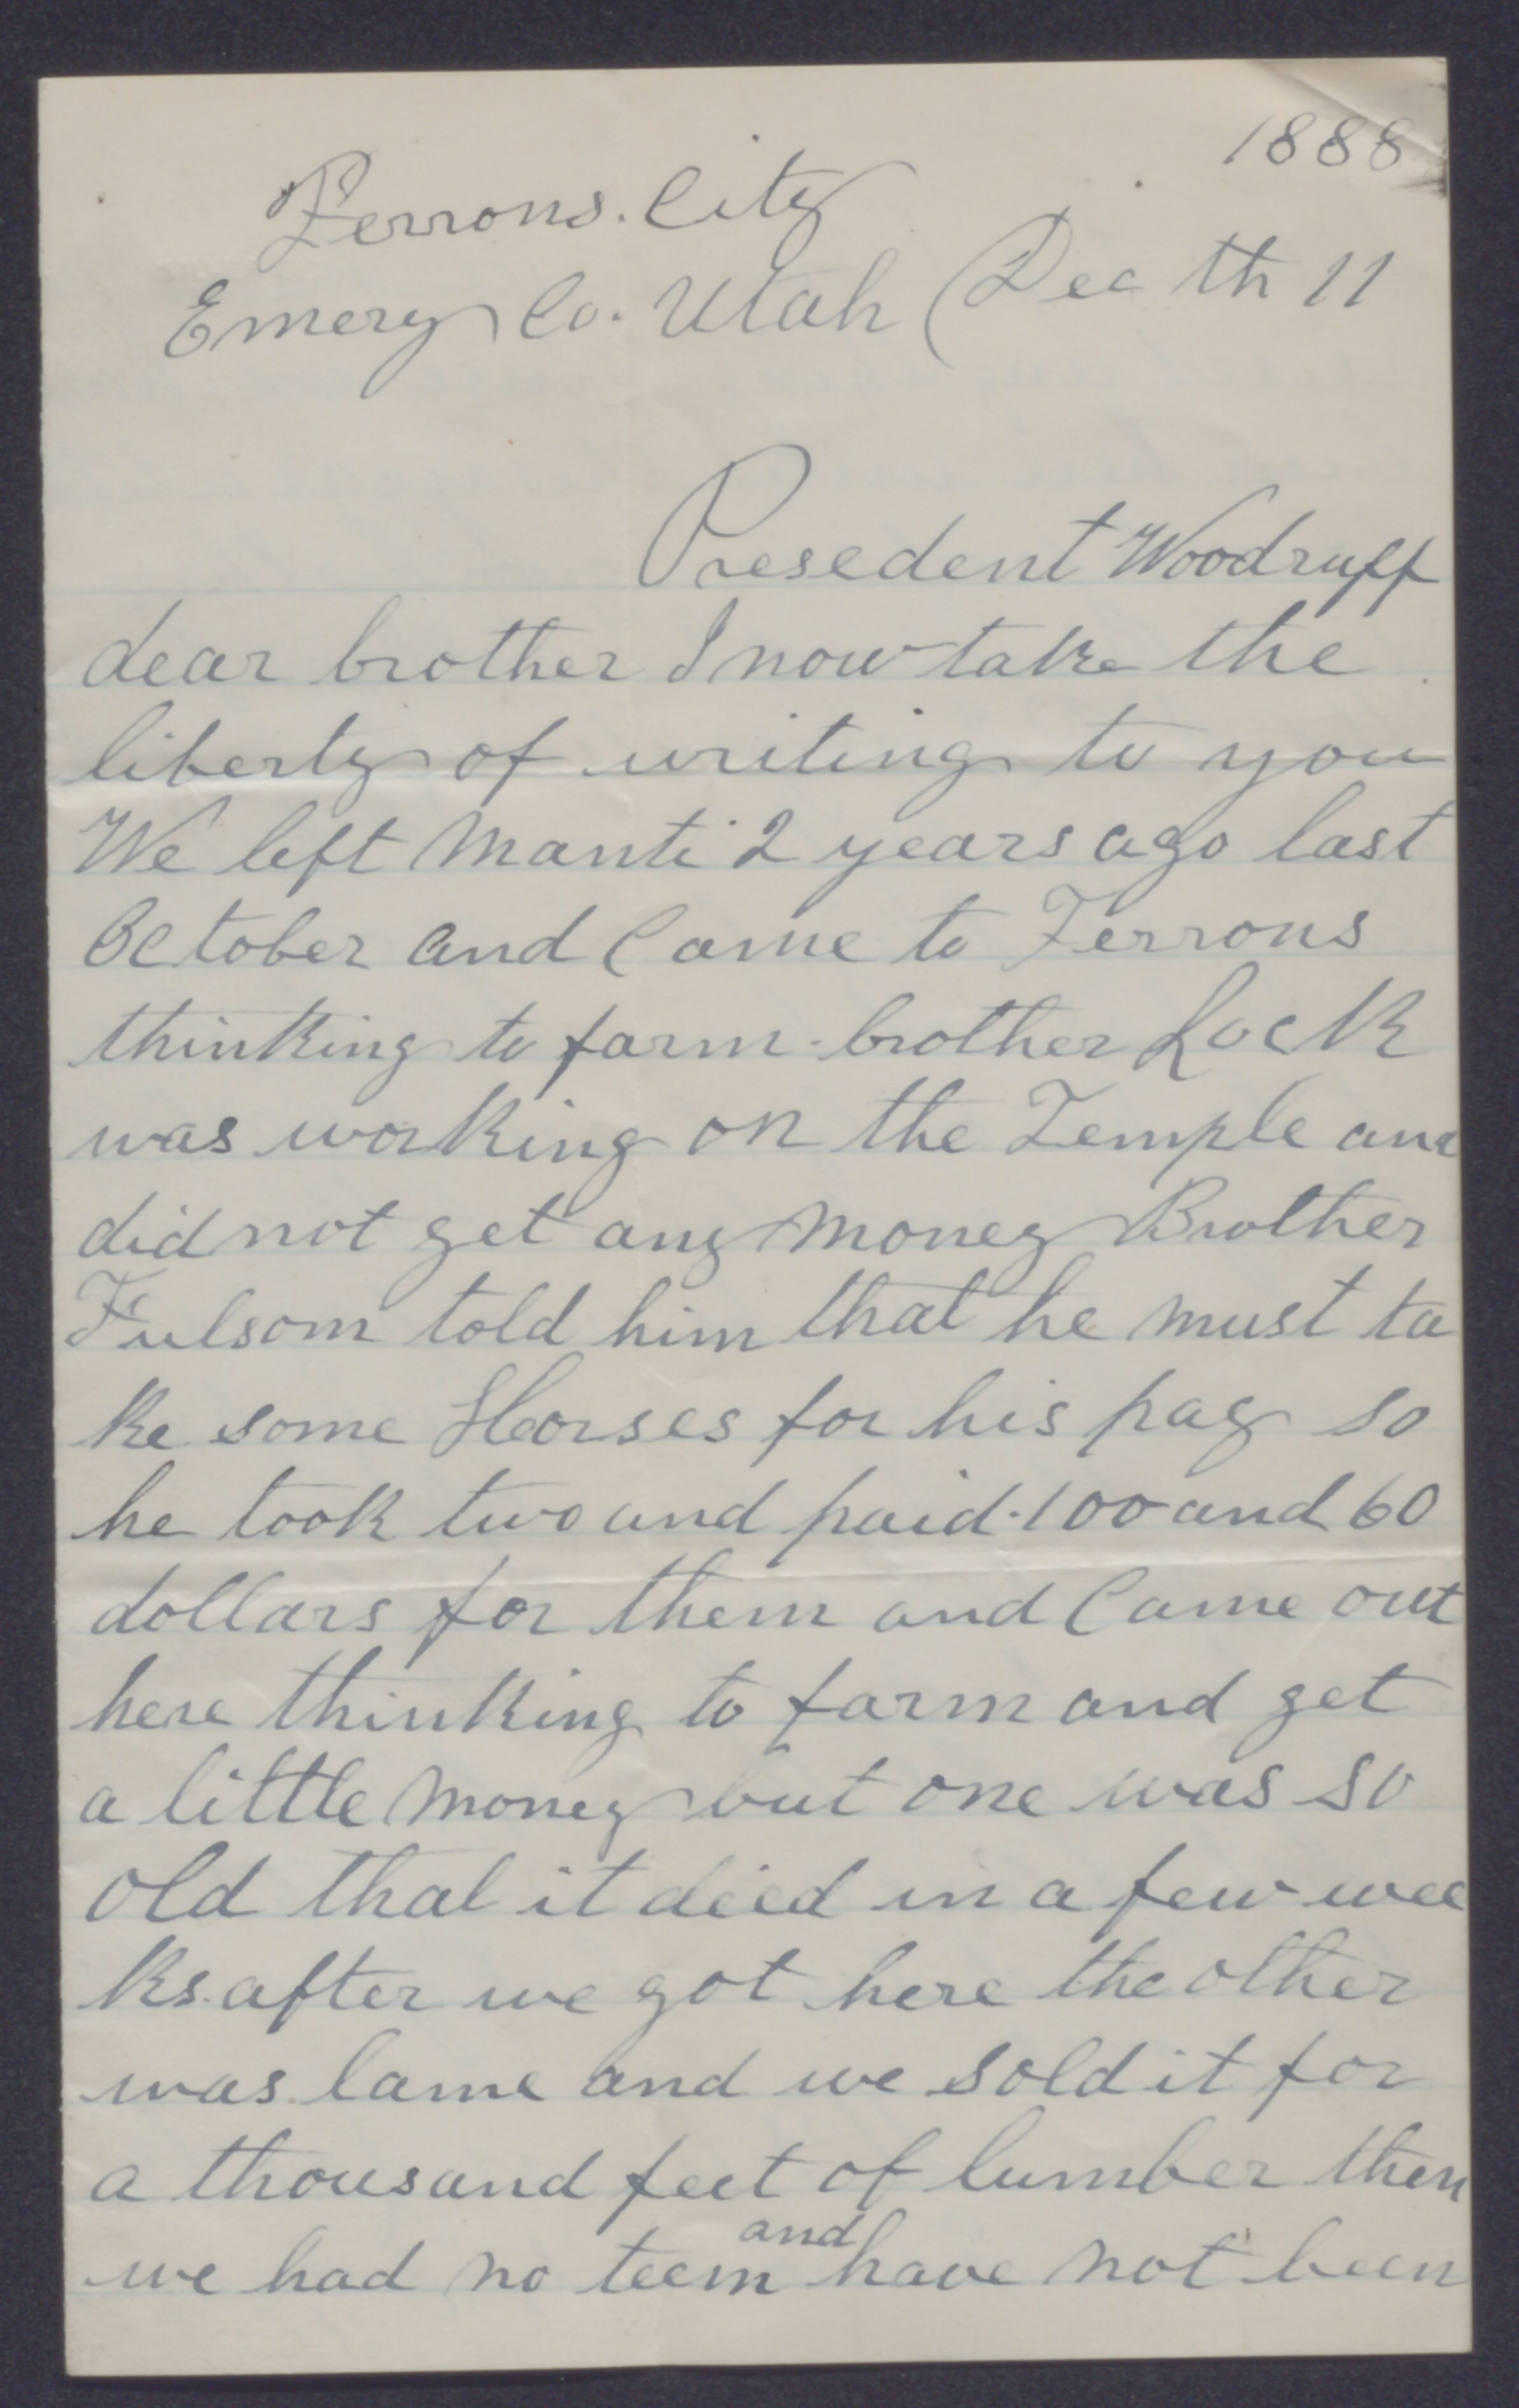 1888
Ferrons. City
Emery Co. Utah (Dec th 11
Presedent Woodruff
dear brother I now take the
liberty of writing to you
We left Manti 2 years ago last
October and Came to Ferrons
thinking to farm. brother Lock
was working on the Temple and
did not get any money Brother
Fulsom told him that he must ta
ke some Horses for his pay so
he took two and paid. 100 and 60
dollars for them and Came out
here thinking to farm and get
a little money but one was so
old that it deied in a few wee
ks. after we got here the other
was lame and we sold it for
a thousand feet of lumber then
and
we had no teem have not been